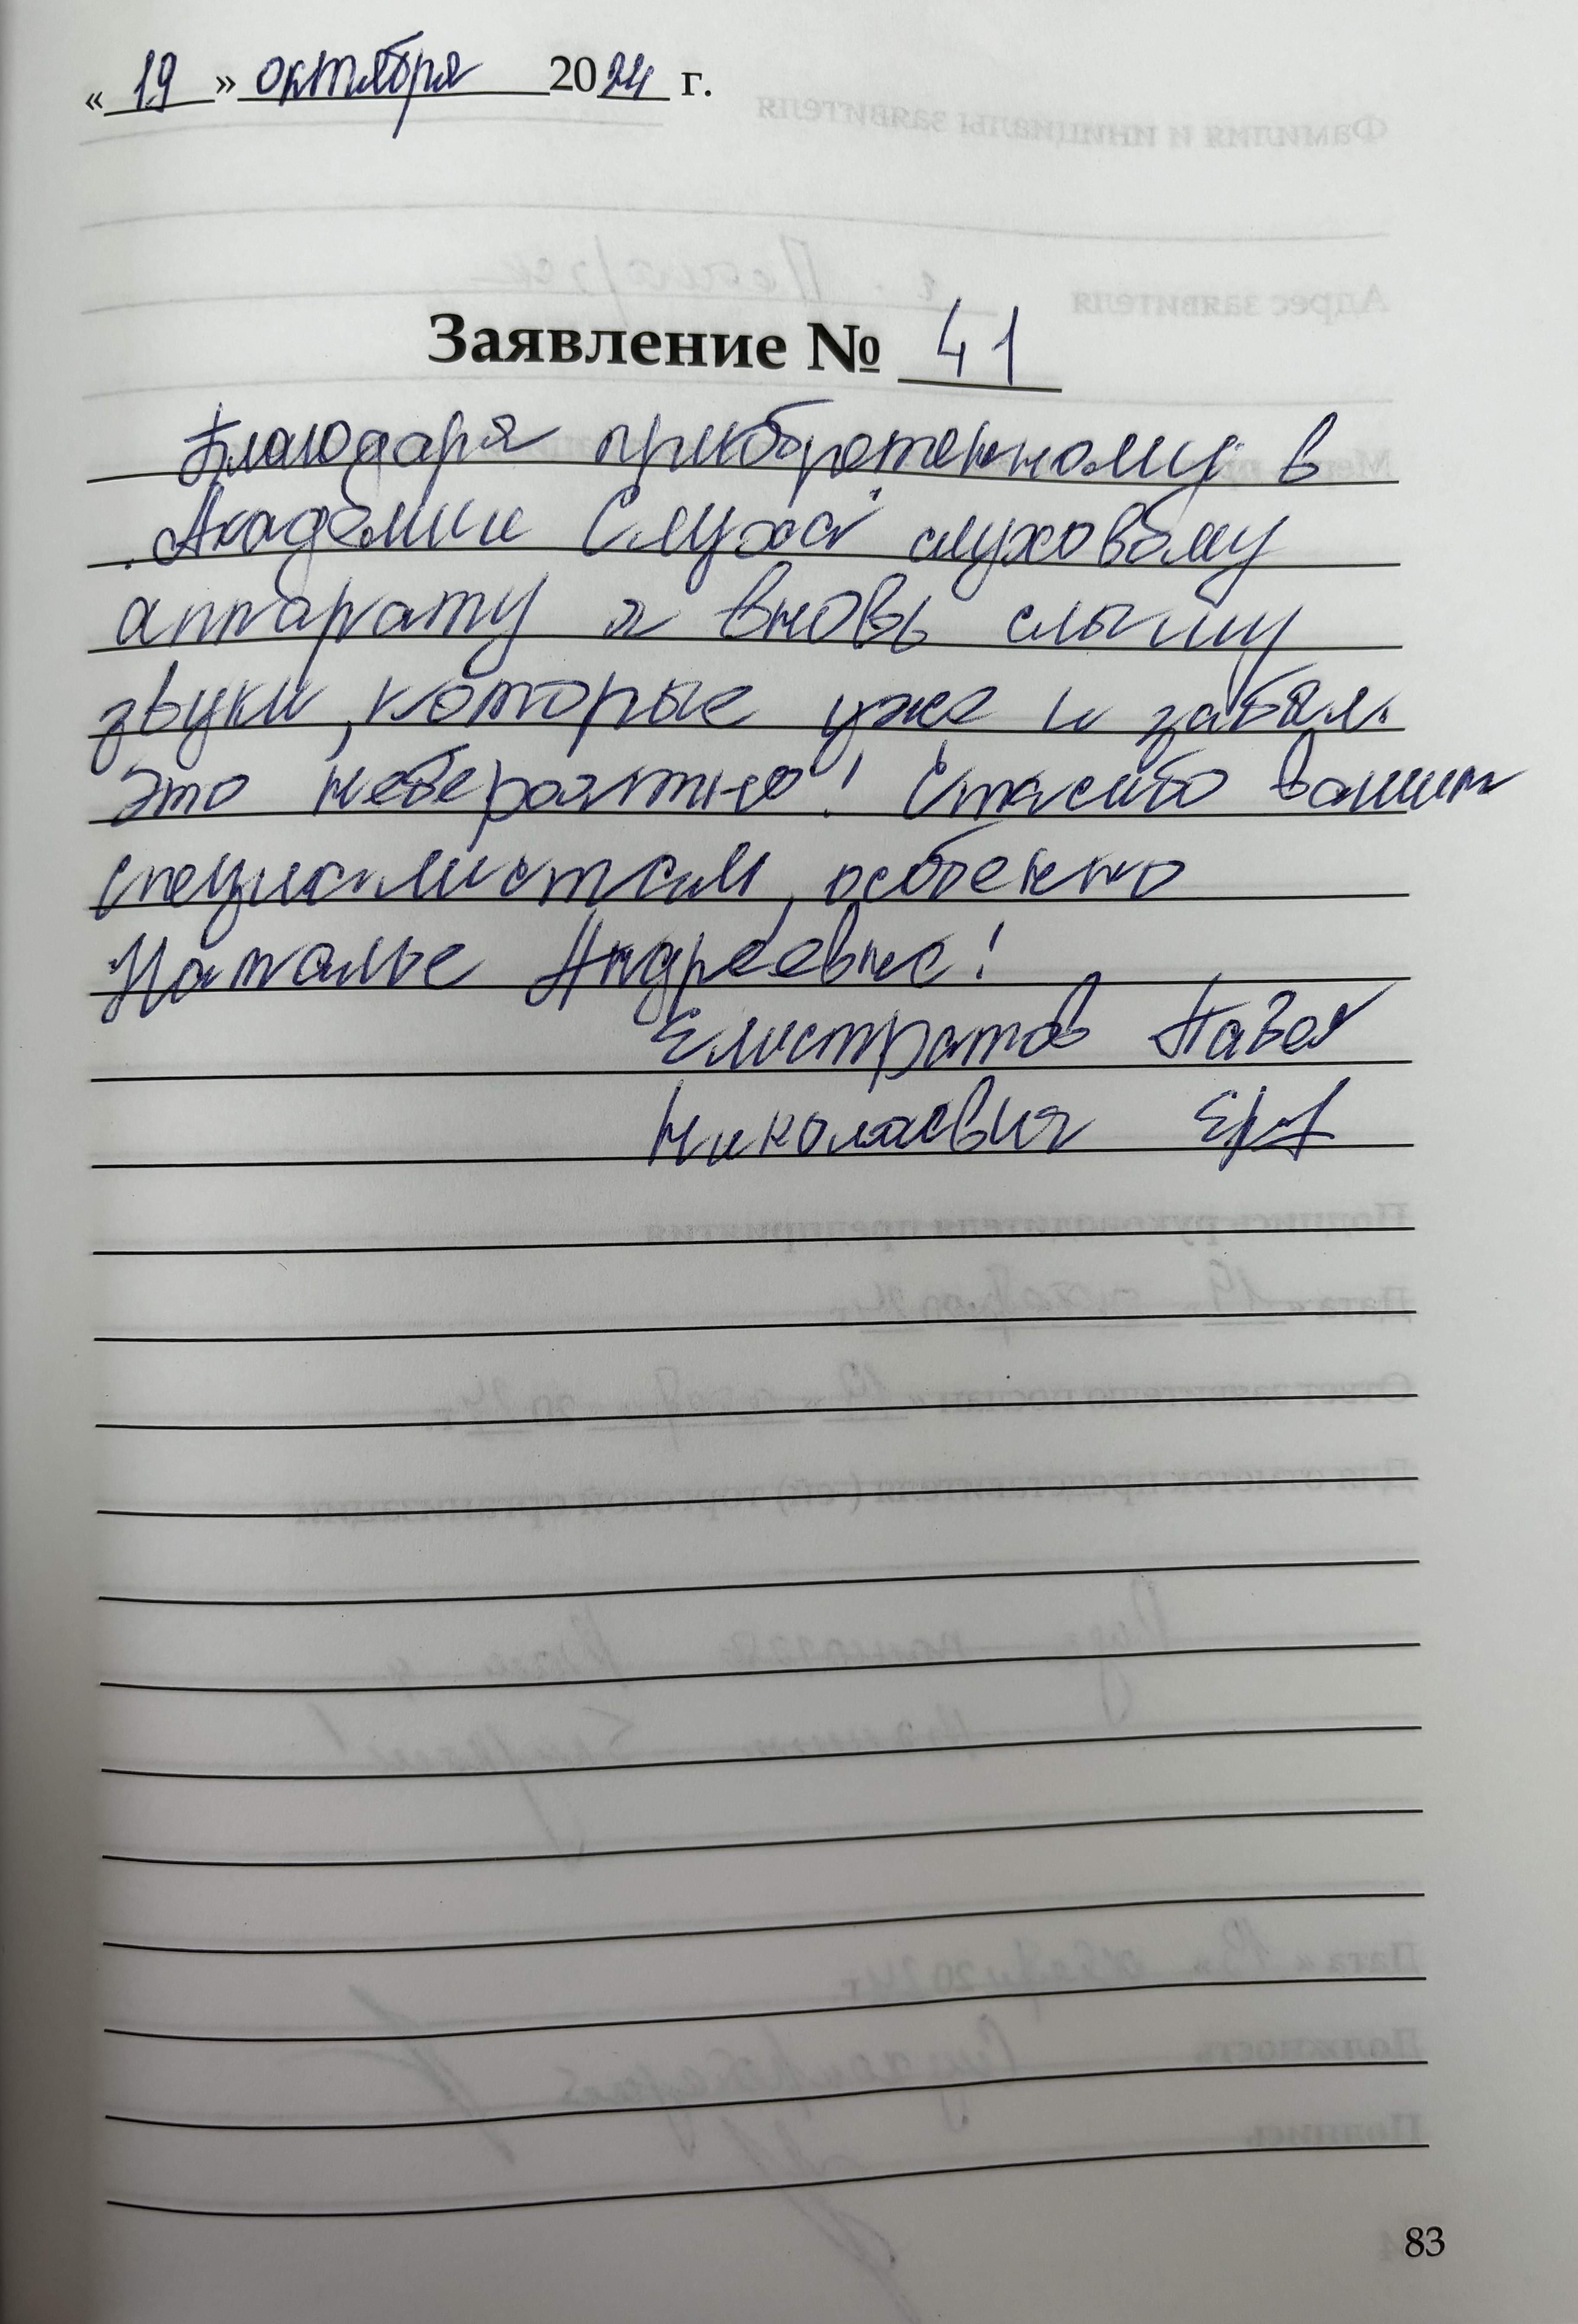 « 19 » октября 2024 г.
Заявление № 41
Благодаря приобретенному в
Академии Слуха слуховому
аппарату я вновь слышу
звуки, которые уже и забыл.
Это невероятно! Спасибо вашим
специалистам, особенно
Наталье Андреевне!
Елистратов Павел
Николаевич
83